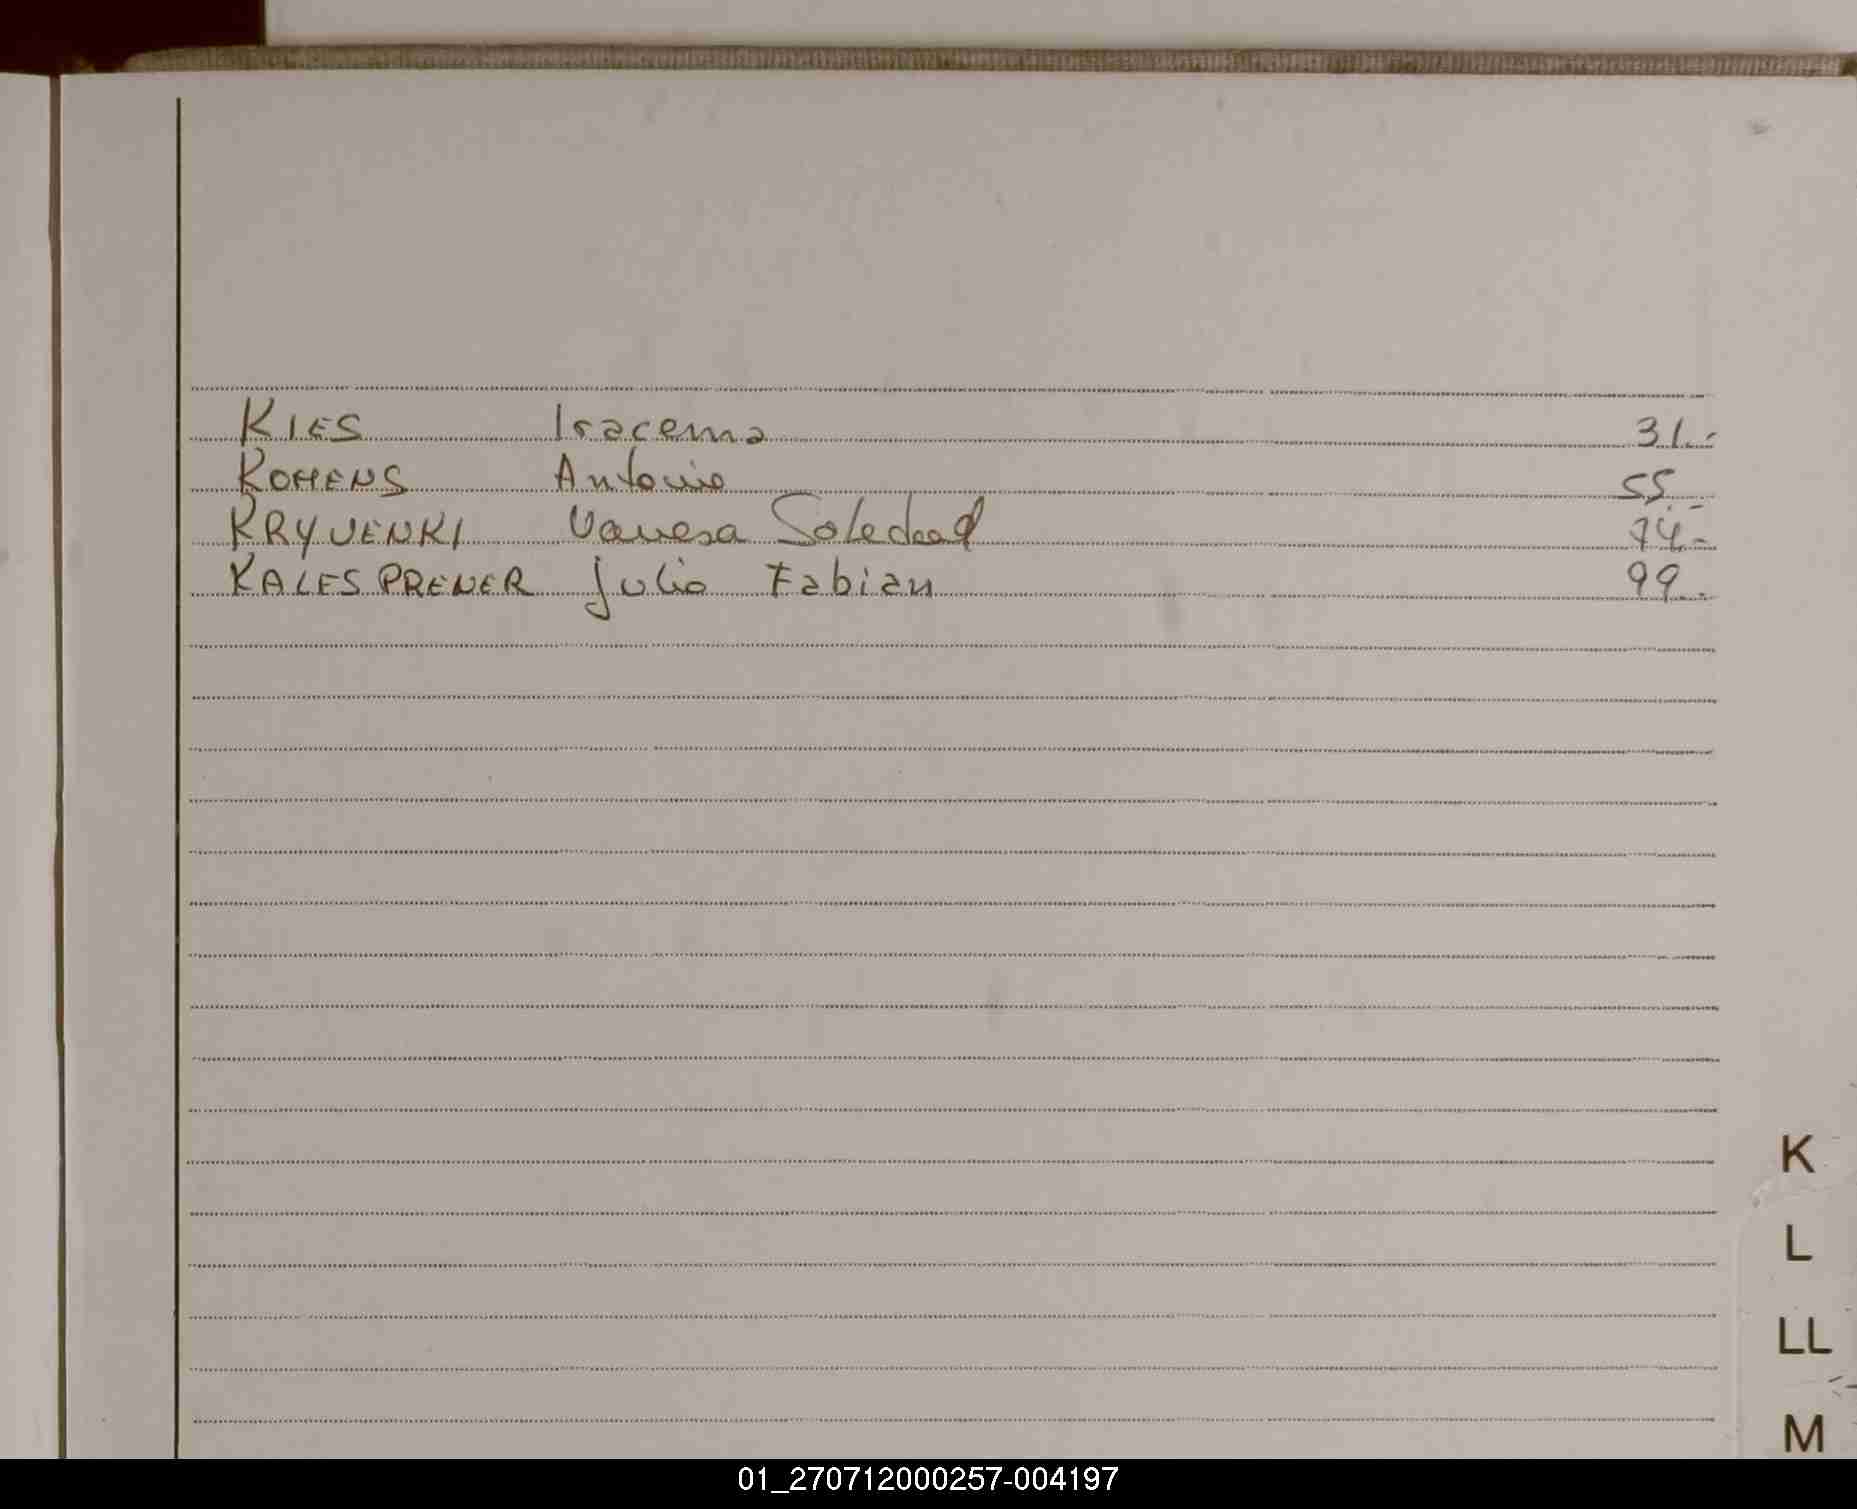 KIES Iracema 31.-
KOHENS Antonio 55.-
KRYVENKI Vanesa Soledad 74.-
KALESPRENER Julio Fabian 99.-
K
L
LL
M
01_270712000257-004197